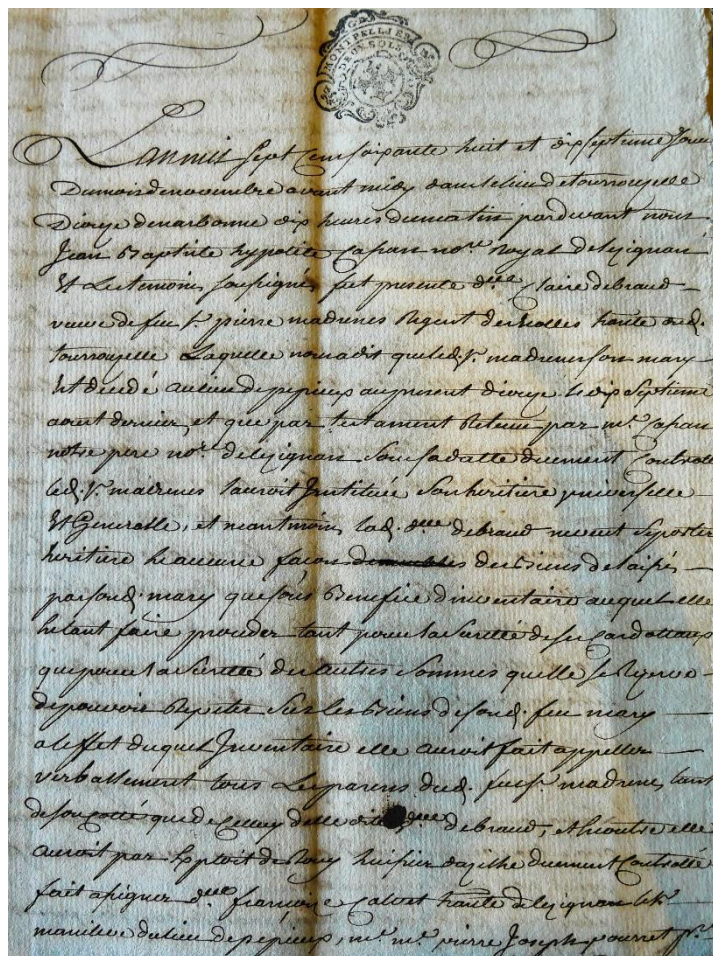 G. DE MONTPELLIER
DEUX SOLS
L'an mil sept cens soixante huit et dix septieme Jour
Du mois de novembre avant midy dans le lieu de tourrouzelle
Dioceze de narbonne dix heures du matin pardevant nous
Jean Baptiste hypolite Cafran no.re Royal de lezignan
Et Les temoins sousignés fut presente d.lle Claire debraud
veuve de feu S.r pierre madrenes Regent des Ecolles hante dud.
tourrouzelle Laquelle nous a dit que led. S.r madrenes son mary
Est decedé au lieu de pepieux au present dioceze le dix septieme
aout dernier, et que par testament Retenu par m.e Cafran
notre pere no.re de lezignan sous sa datte duement Controllé
led. S.r madrenes l'auroit Instituée son heritiere universelle
Et Generalle, et neantmoins lad. d.lle debraud ne veut se porter
heritiere en aucune façon des biens delaissés
par sond. mary que sous Benefice d'inventaire auquel elle
faire proceder tant pour la sureté de ses cas dotteaux
que pour la sureté des autres sommes quelle se Rezerve
de pouvoir Repeter sur les biens de sond. feu mary
a l'effet duquel Inventaire elle auroit fait appeller
verballement tous Les parens dud. feu S.r madrenes, tant
de son cotté que de Celluy delle d.lle debraud, et en outre elle
auroit par Exploit de huissier dazilhe duement Controllé
fait asigner d.lle francoize Calvet hante de lezignan le S.r
du lieu de pepieux, m.e m.e pierre Joseph pourret p.r